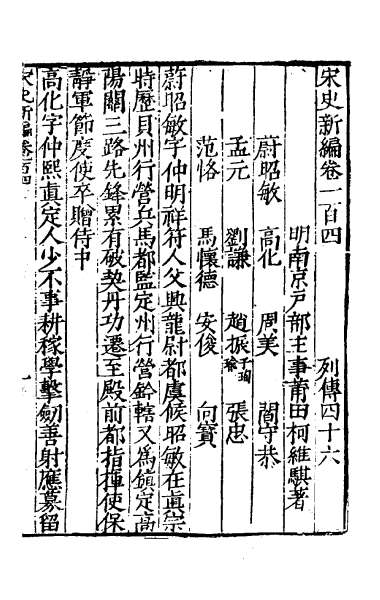 宋史新編卷一百四　列傳四十六
明南京戸部主事莆田柯維騏著
蔚昭敏　高化　周美　閻守恭
孟元　劉謙　趙振子珣　張忠
范恪　馬懷德　安俊　向寳
蔚昭敏字仲明祥符人父興龍尉都虞候昭敏在眞宗
時歷貝州行營兵馬都監定州行營鈐轄又爲鎮定高
陽關三路先鋒累有破契丹功遷至殿前都指揮使保
靜軍節度使卒贈侍中
高化字仲熙眞定人少不事耕稼學擊劒善射應募留
宋史新編卷百四